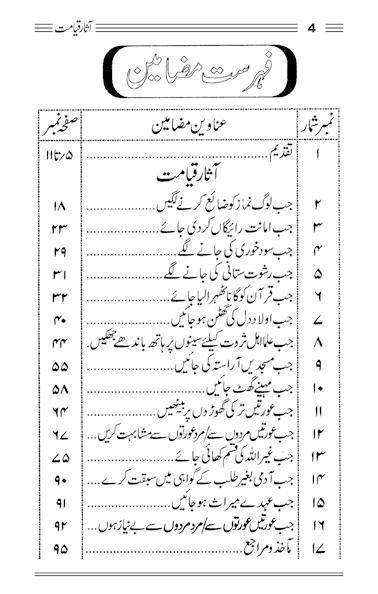 4 آثار قیامت
فہرست مضامین
نمبر شمار عناوین مضامین صفحہ نمبر
۱ تقدیم ۵/تا۱۱
آثار قیامت
۲ جب لوگ نماز کو ضائع کرنے لگیں ۱۸
۳ جب امانت رائیگاں کر دی جائے ۲۳
۴ جب سود خوری کی جانے لگے ۲۹
۵ جب رشوت ستانی کی جانے لگے ۳۱
۶ جب قرآن کو گانا ٹھہرا لیا جائے ۳۲
۷ جب اولاد دل کی گھٹن ہو جائیں ۴۰
۸ جب علما اہل ثروت کیلئے سینوں پر ہاتھ باندھے جھکیں ۴۴
۹ جب مسجدیں آراستہ کی جائیں ۵۵
۱۰ جب مہینے گھٹ جائیں ۵۸
۱۱ جب عورتیں ترکی گھوڑوں پر بیٹھیں ۶۴
۱۲ جب عورتیں مردوں سے/مرد عورتوں سے مشابہت کریں ۶۷
۱۳ جب غیر اللہ کی قسم کھائی جائے ۷۵
۱۴ جب آدمی بغیر طلب کے گواہی میں سبقت کرے ۹۰
۱۵ جب عہدے میراث ہو جائیں ۹۱
۱۶ جب عورتیں عورتوں سے/مرد مردوں سے بے نیاز ہوں ۹۲
۱۷ مآخذ و مراجع ۹۵